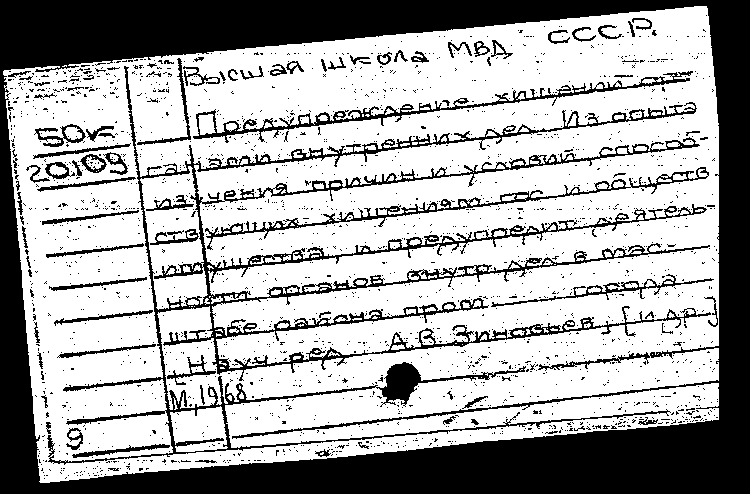 Высшая школа МВД СССР.
Предупреждение хищений ор-
50к
20109
ганами внутренних дел. Из опыта
изучения причин и условий, способ-
ствующих хищениям гос и обществ.
имущества, и предупредит. деятель-
ности органов внутр. дел в мас-
штабе района пром. города
[Науч ред. А.В. Зиновьев, [и др.]
М., 1968.
9